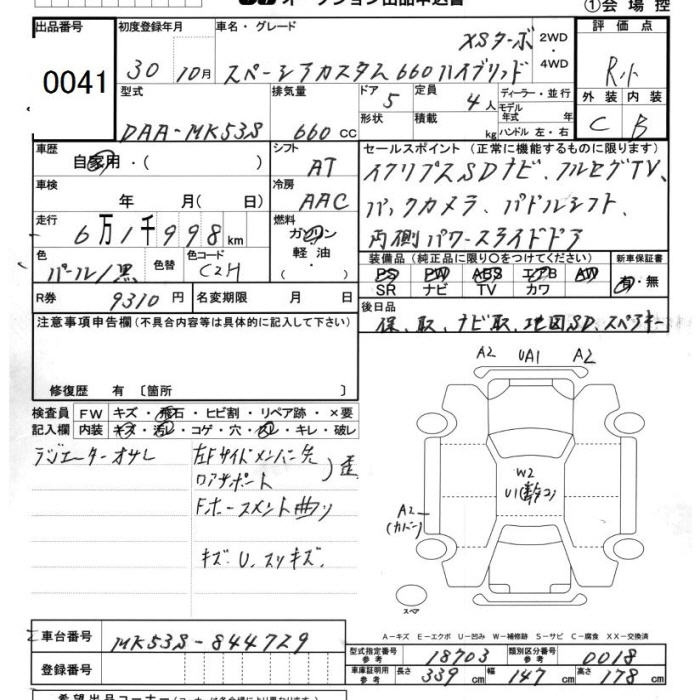 オークション出品申込書
①会場控
出品番号 初度登録年月 車名・グレード 評価点
0041 30 10月 スペーシアカスタム660ハイブリッド XSターボ 2WD・4WD R小
型式 排気量 ドア 定員 ディーラー・並行 外装 内装
DAA-MK53S 660 CC 5 4人 モデル 年式 年 C B
形状 積載 kg ハンドル 左・右
車歴 シフト セールスポイント(正常に機能するものに限ります)
自家用・( ) AT SDナビ、フルセグTV、
車検 冷房 バックカメラ、パドルシフト、
年 月( 日) AAC 両側パワースライドドア
走行 燃料
6万1千998km ガソリン 軽油・
色 色替 色コード 装備品(純正品に限り〇をつけてください) 新車保証書
パール/黒 C2H PS PW ABS エアB AW 有・無
SR ナビ TV カワ
R券 9310円 名変期限 月 日 後日品
保、取、ナビ取、地図SD、スペアキー
注意事項申告欄(不具合内容等は具体的に記入して下さい)
修復歴 有〔箇所 〕
検査員 FW キズ・飛石・ヒビ割・リペア跡・×要
記入欄 内装 キズ・汚レ・コゲ・穴・ ・キレ・破レ
ラジエーターオサレ 左Fサイドメンバー先
ロアサポート )歪
Fホースメント曲り
キズ U、スリキズ、
A2 UA1 A2
W2
A2
(カバー)
スペア
A-キズ E-エクボ U-凹み W-補修跡 S-サビ C-腐食 XX-交換済
車台番号 MK53S-844729 型式指定番号 参考 18703 類別区分番号 参考 0018
登録番号 車庫証明用 参考 長さ 339cm 幅 147cm 高さ 178cm
希望出品コーナー